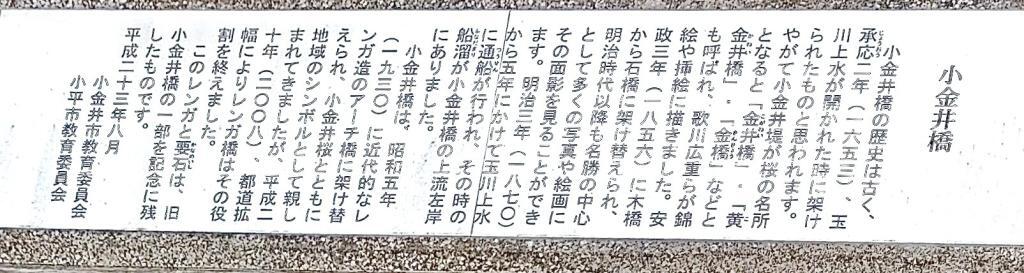 小金井橋
小金井橋の歴史は古く、
承応二年（一六五三）、玉
川上水が開かれた時に架け
られたものと思われます。
やがて小金井堤が桜の名所
となると「金井橋」・「黄
金井橋」・「金橋」などと
も呼ばれ、歌川広重らが錦
絵や挿絵に描きました。安
政三年（一八五六）に木橋
から石橋に架け替えられ、
明治時代以降も名勝の中心
として多くの写真や絵画に
その面影を見ることができ
ます。明治三年（一八七〇）
から五年にかけて玉川上水
に通船が行われ、その時の
船溜が小金井橋の上流左岸
にありました。
小金井橋は、昭和五年
（一九三〇）に近代的なレ
ンガ造のアーチ橋に架け替
えられ、小金井桜とともに
地域のシンボルとして親し
まれてきましたが、平成二
十年（二〇〇八）、都道拡
幅によりレンガ橋はその役
割を終えました。
このレンガと要石は、旧
小金井橋の一部を記念に残
したものです。
平成二十三年八月
小金井市教育委員会
小平市教育委員会